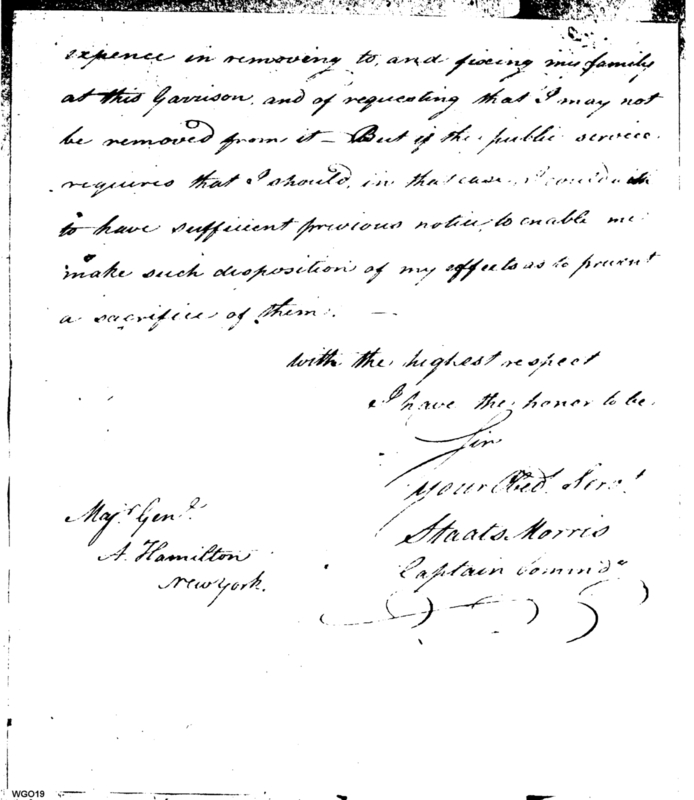 expence in removing to, and fixing my family
at this Garrison, and of requesting that I may not
be removed from it – But if the public service
requires that I should, in that case, I
to have sufficient previous notice, to enable me
make such disposition of my effects as to prevent
a sacrifice of them. —
With the highest respect
I have the honor to be
Sir
your Obed.t Serv.t
Staats Morris
Captain Commd.g
Maj.r Gen.l
A. Hamilton
New York.
WGO19